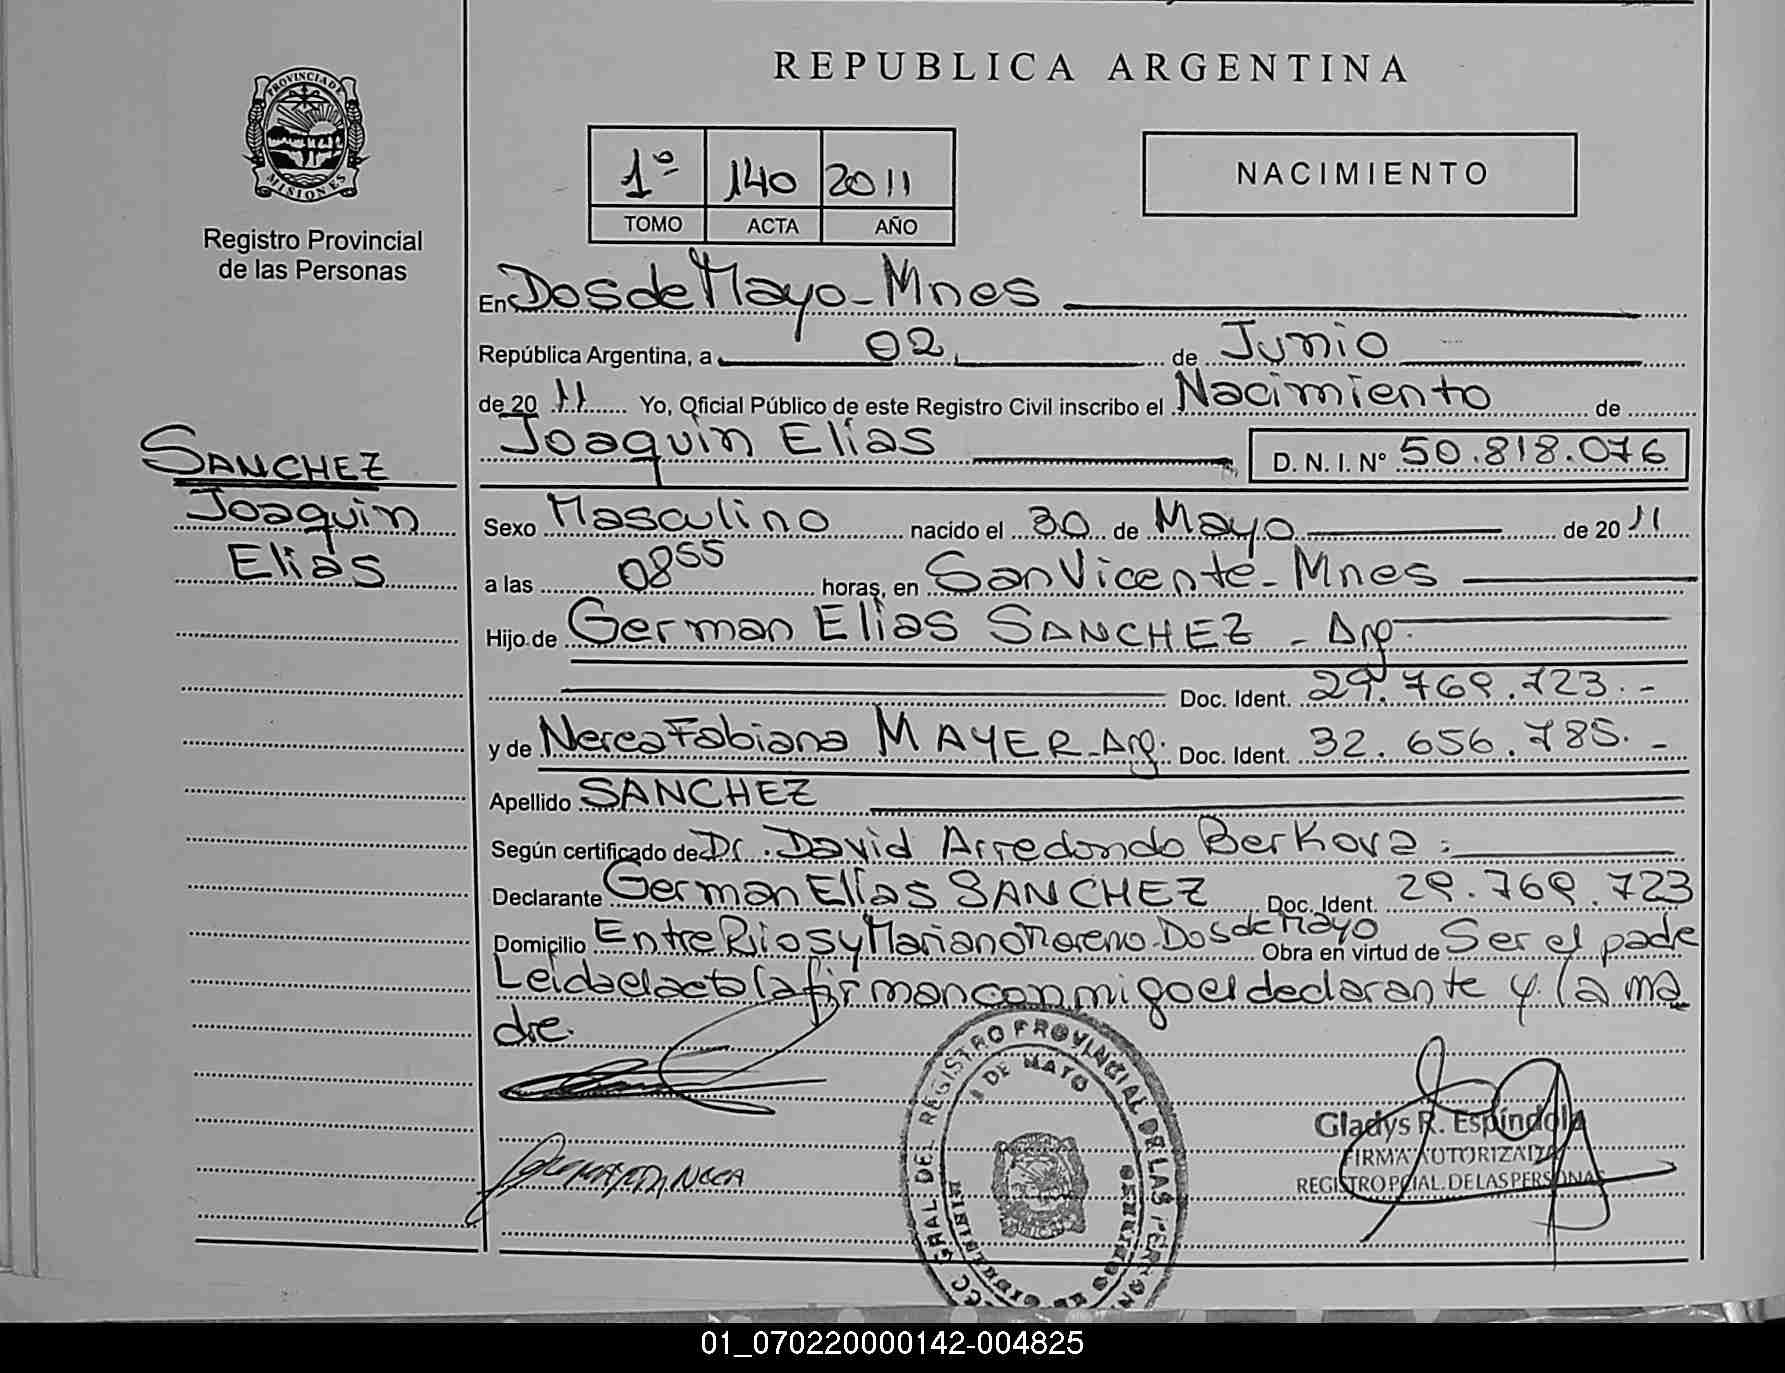 REPUBLICA ARGENTINA
PROVINCIA DE
MISIONES
Registro Provincial
de las Personas
1º 140 2011
TOMO ACTA AÑO
NACIMIENTO
En Dos de Mayo - Mnes
República Argentina, a 02 de Junio
de 20 11 Yo, Oficial Público de este Registro Civil inscribo el Nacimiento de
Joaquin Elías D. N. I. Nº 50.818.076
SANCHEZ
Joaquin
Elías
Sexo Masculino nacido el 30 de Mayo de 20 11
a las 0855 horas, en San Vicente - Mnes
Hijo de German Elías SANCHEZ - Arg.
Doc. Ident. 29.769.723.-
y de Nerea Fabiana MAYER - Arg. Doc. Ident. 32.656.785.-
Apellido SANCHEZ
Según certificado de Dr. David Arredondo Berkova
Declarante German Elías SANCHEZ Doc. Ident. 29.769.723
Domicilio Entre Rios y Mariano Moreno - Dos de Mayo Obra en virtud de Ser el padre
Leida el acta la firman conmigo el declarante y la ma
dre.
GRAL DEL REGISTRO PROVINCIAL DE LAS PERSON
DE MAYO
MISIONES
Gladys R. Espíndola
FIRMA AUTORIZADA
REGISTRO PCIAL. DE LAS PERSONAS
01_070220000142-004825